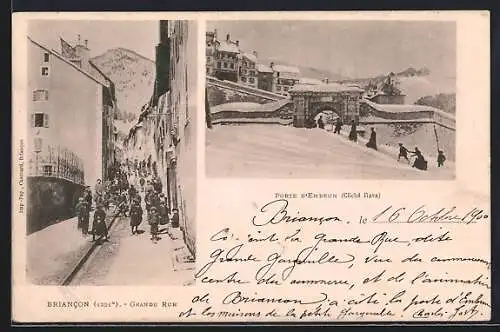 Imp.-Pap. Charnard, Briançon
PORTE D'EMBRUN (Cliché Nava)
Briançon, le 16 Octobre 1900
Ci-joint la Grande Rue dite
Grande Gargouille, vue du commencement
centre du commerce, et de l'animation
BRIANÇON (1321m). - GRANDE RUE
de Briançon, à côté la porte d'Embrun
et les maisons de la petite gargouille.